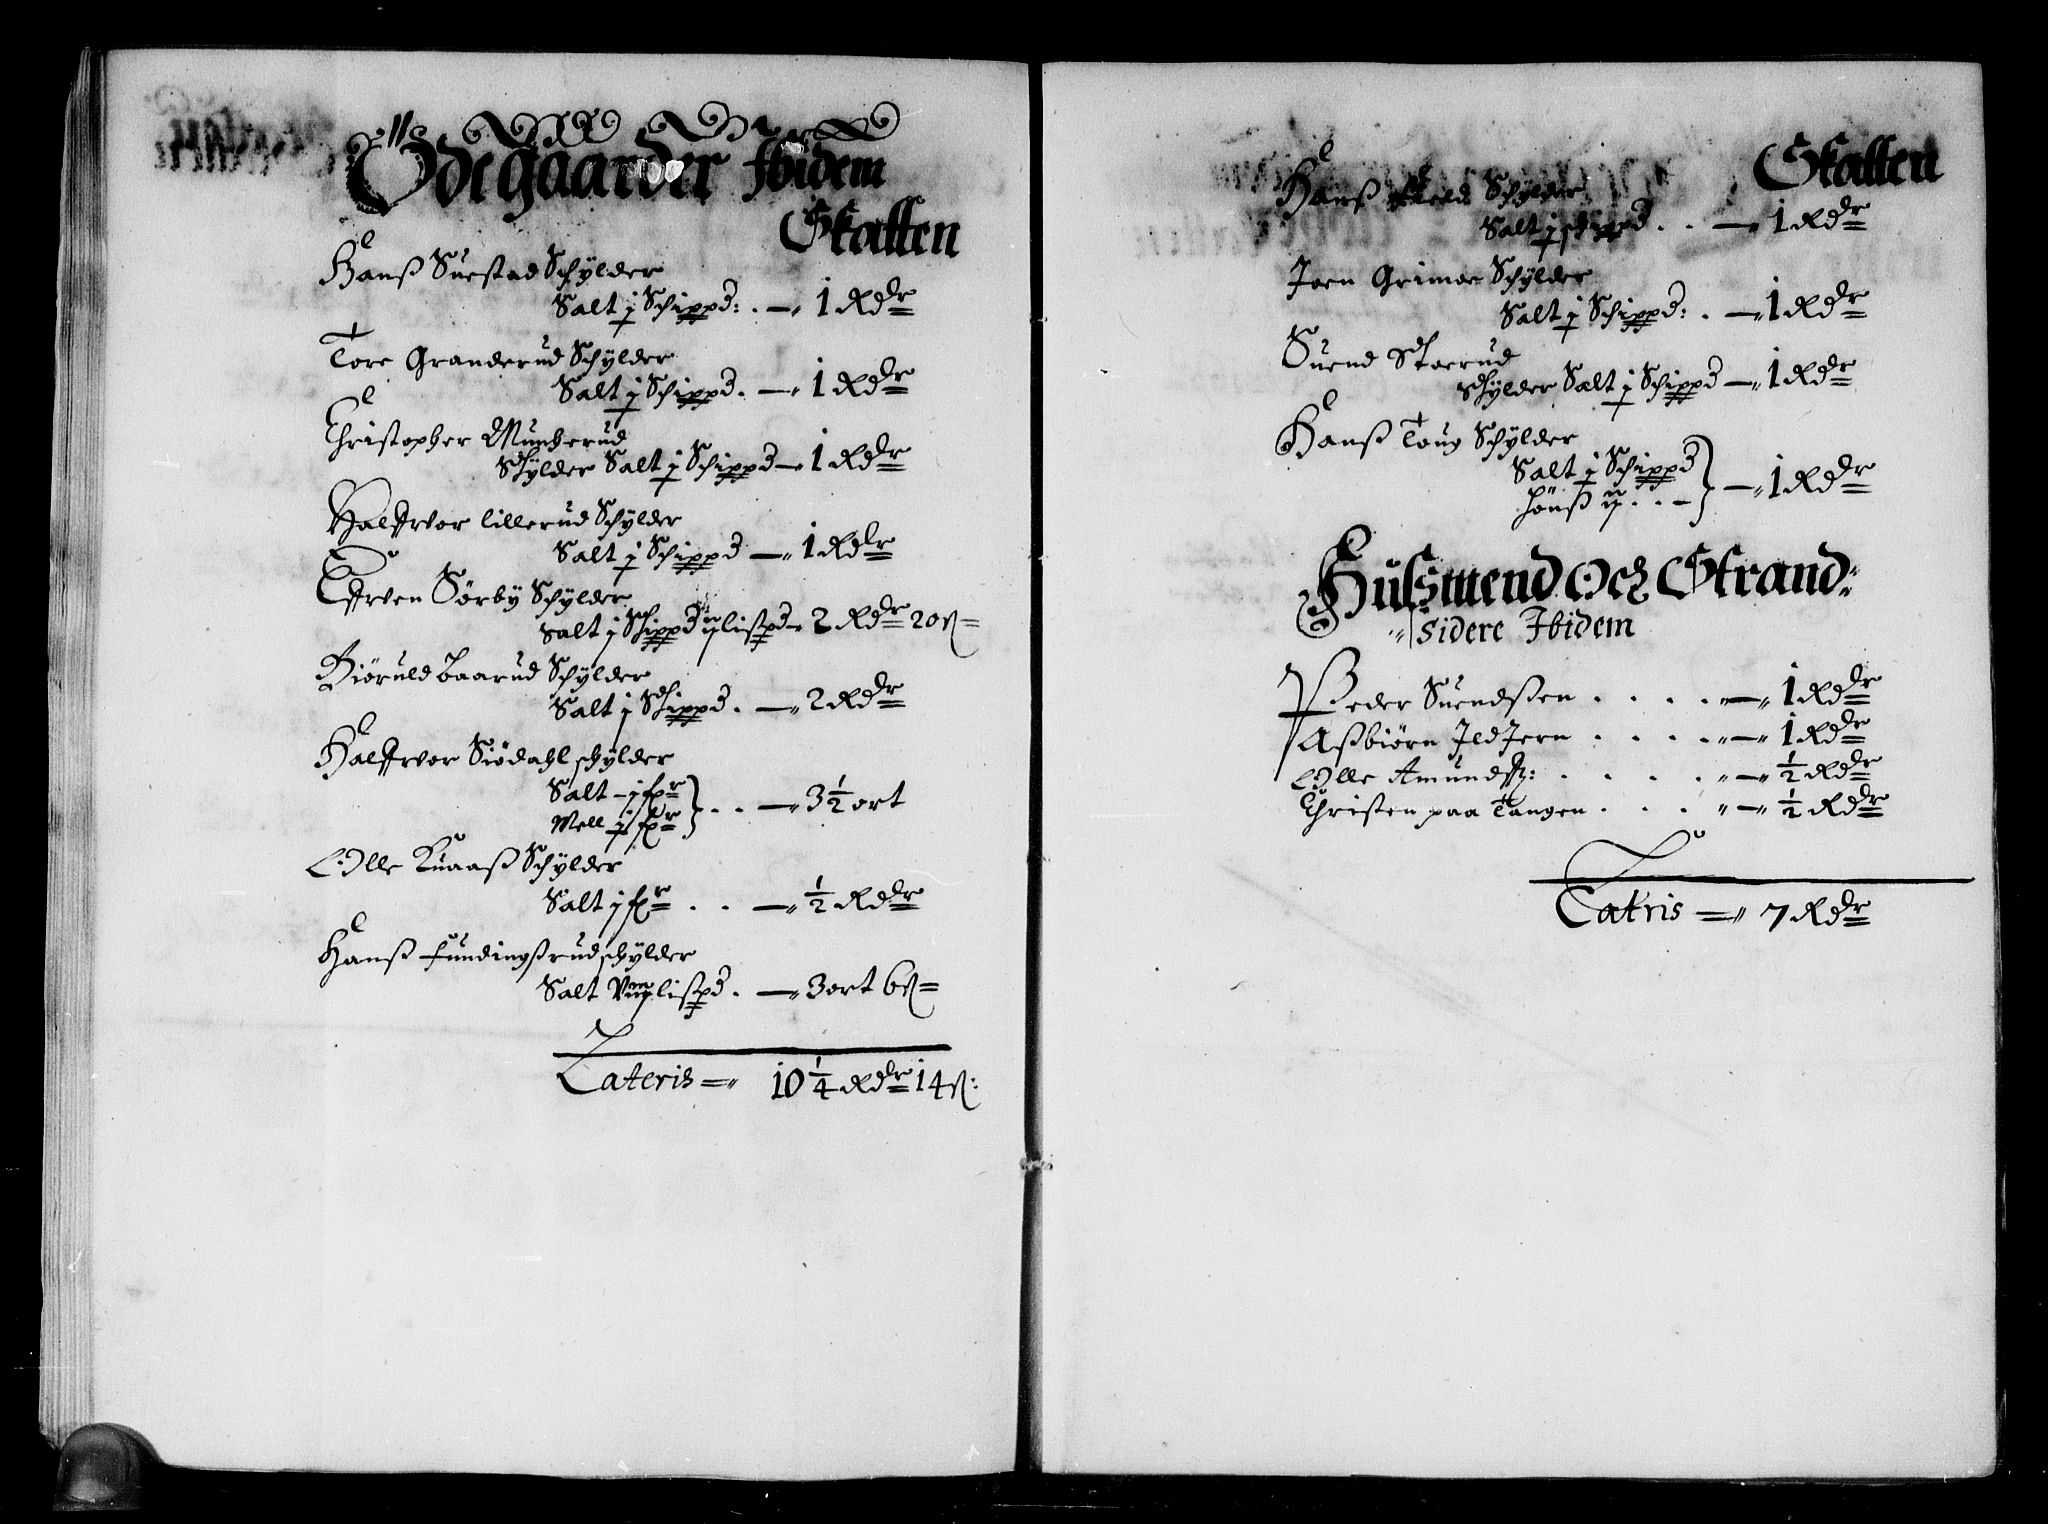 Ødegaarder Ibidem
Skatten
Hanß Suestad Schylder
Salt j Schippd: . — 1 Rdr
Tore Granderud Schylder
Salt j Schippd. — 1 Rdr
Christopher Muncherud
Schylder Salt j Schippd — 1 Rdr
Halffvor Lillerud Schylder
Salt j Schippd — 1 Rdr
Effven Sørby Schylder
Salt j Schippd ij lispd — 2 Rdr 20 ß
Biøruld Baarud Schylder
Salt j Schippd . — 2 Rdr
Halffvor Siødahl schylder
Salt — j fr
Mell j fr . . — 3½ ort
Olle Kuaaß Schylder
Salt j fr . . — ½ Rdr
Hanß fundingßrud schylder
Salt Viij lispd . — 3 ort 6 ß
Lateris = 10 ¼ Rdr 14 ß:
Skatten
Hanß Schylder
Salt j schippd . . — 1 Rdr
Joen Grimoe Schylder
Salt j Schippd: . — 1 Rdr
Suend Stoerud
Schylder Salt j Schippd — 1 Rdr
Hanß Toug Schylder
Salt j Schippd
hønß ij . . — 1 Rdr
Hußmend Och Strand=
sidere Ibidem
Peder Suendßen . . . . — 1 Rdr
Aßbiørn Ildjern . . . . — 1 Rdr
Olle Amundß: . . . . — ½ Rdr
Christen paa Tangen . . . — ½ Rdr
Latris = 7 Rdr